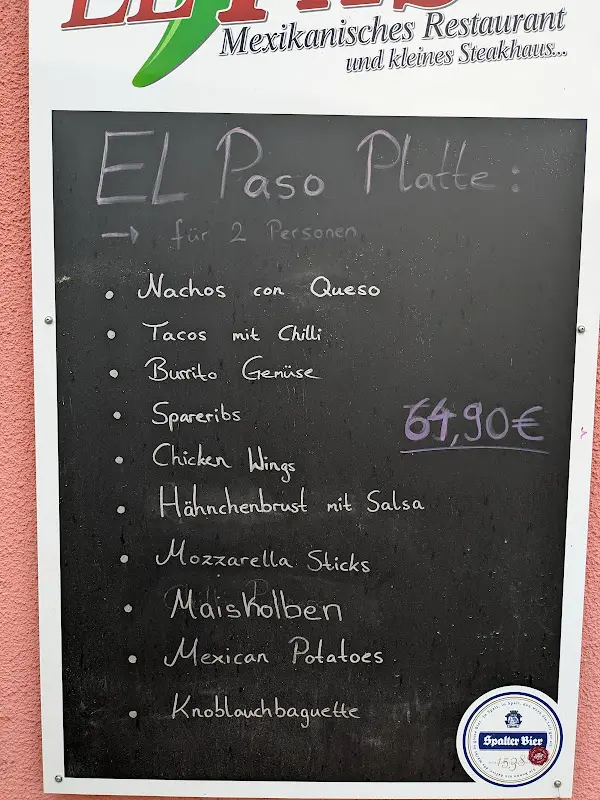 Mexikanisches Restaurant
und kleines Steakhaus...
EL Paso Platte:
→ für 2 Personen
• Nachos con Queso
• Tacos mit Chilli
• Burrito Gemüse
• Spareribs
64,90€
• Chicken Wings
• Hähnchenbrust mit Salsa
• Mozzarella Sticks
• Maiskolben
• Mexican Potatoes
• Knoblauchbaguette
Spalter Bier